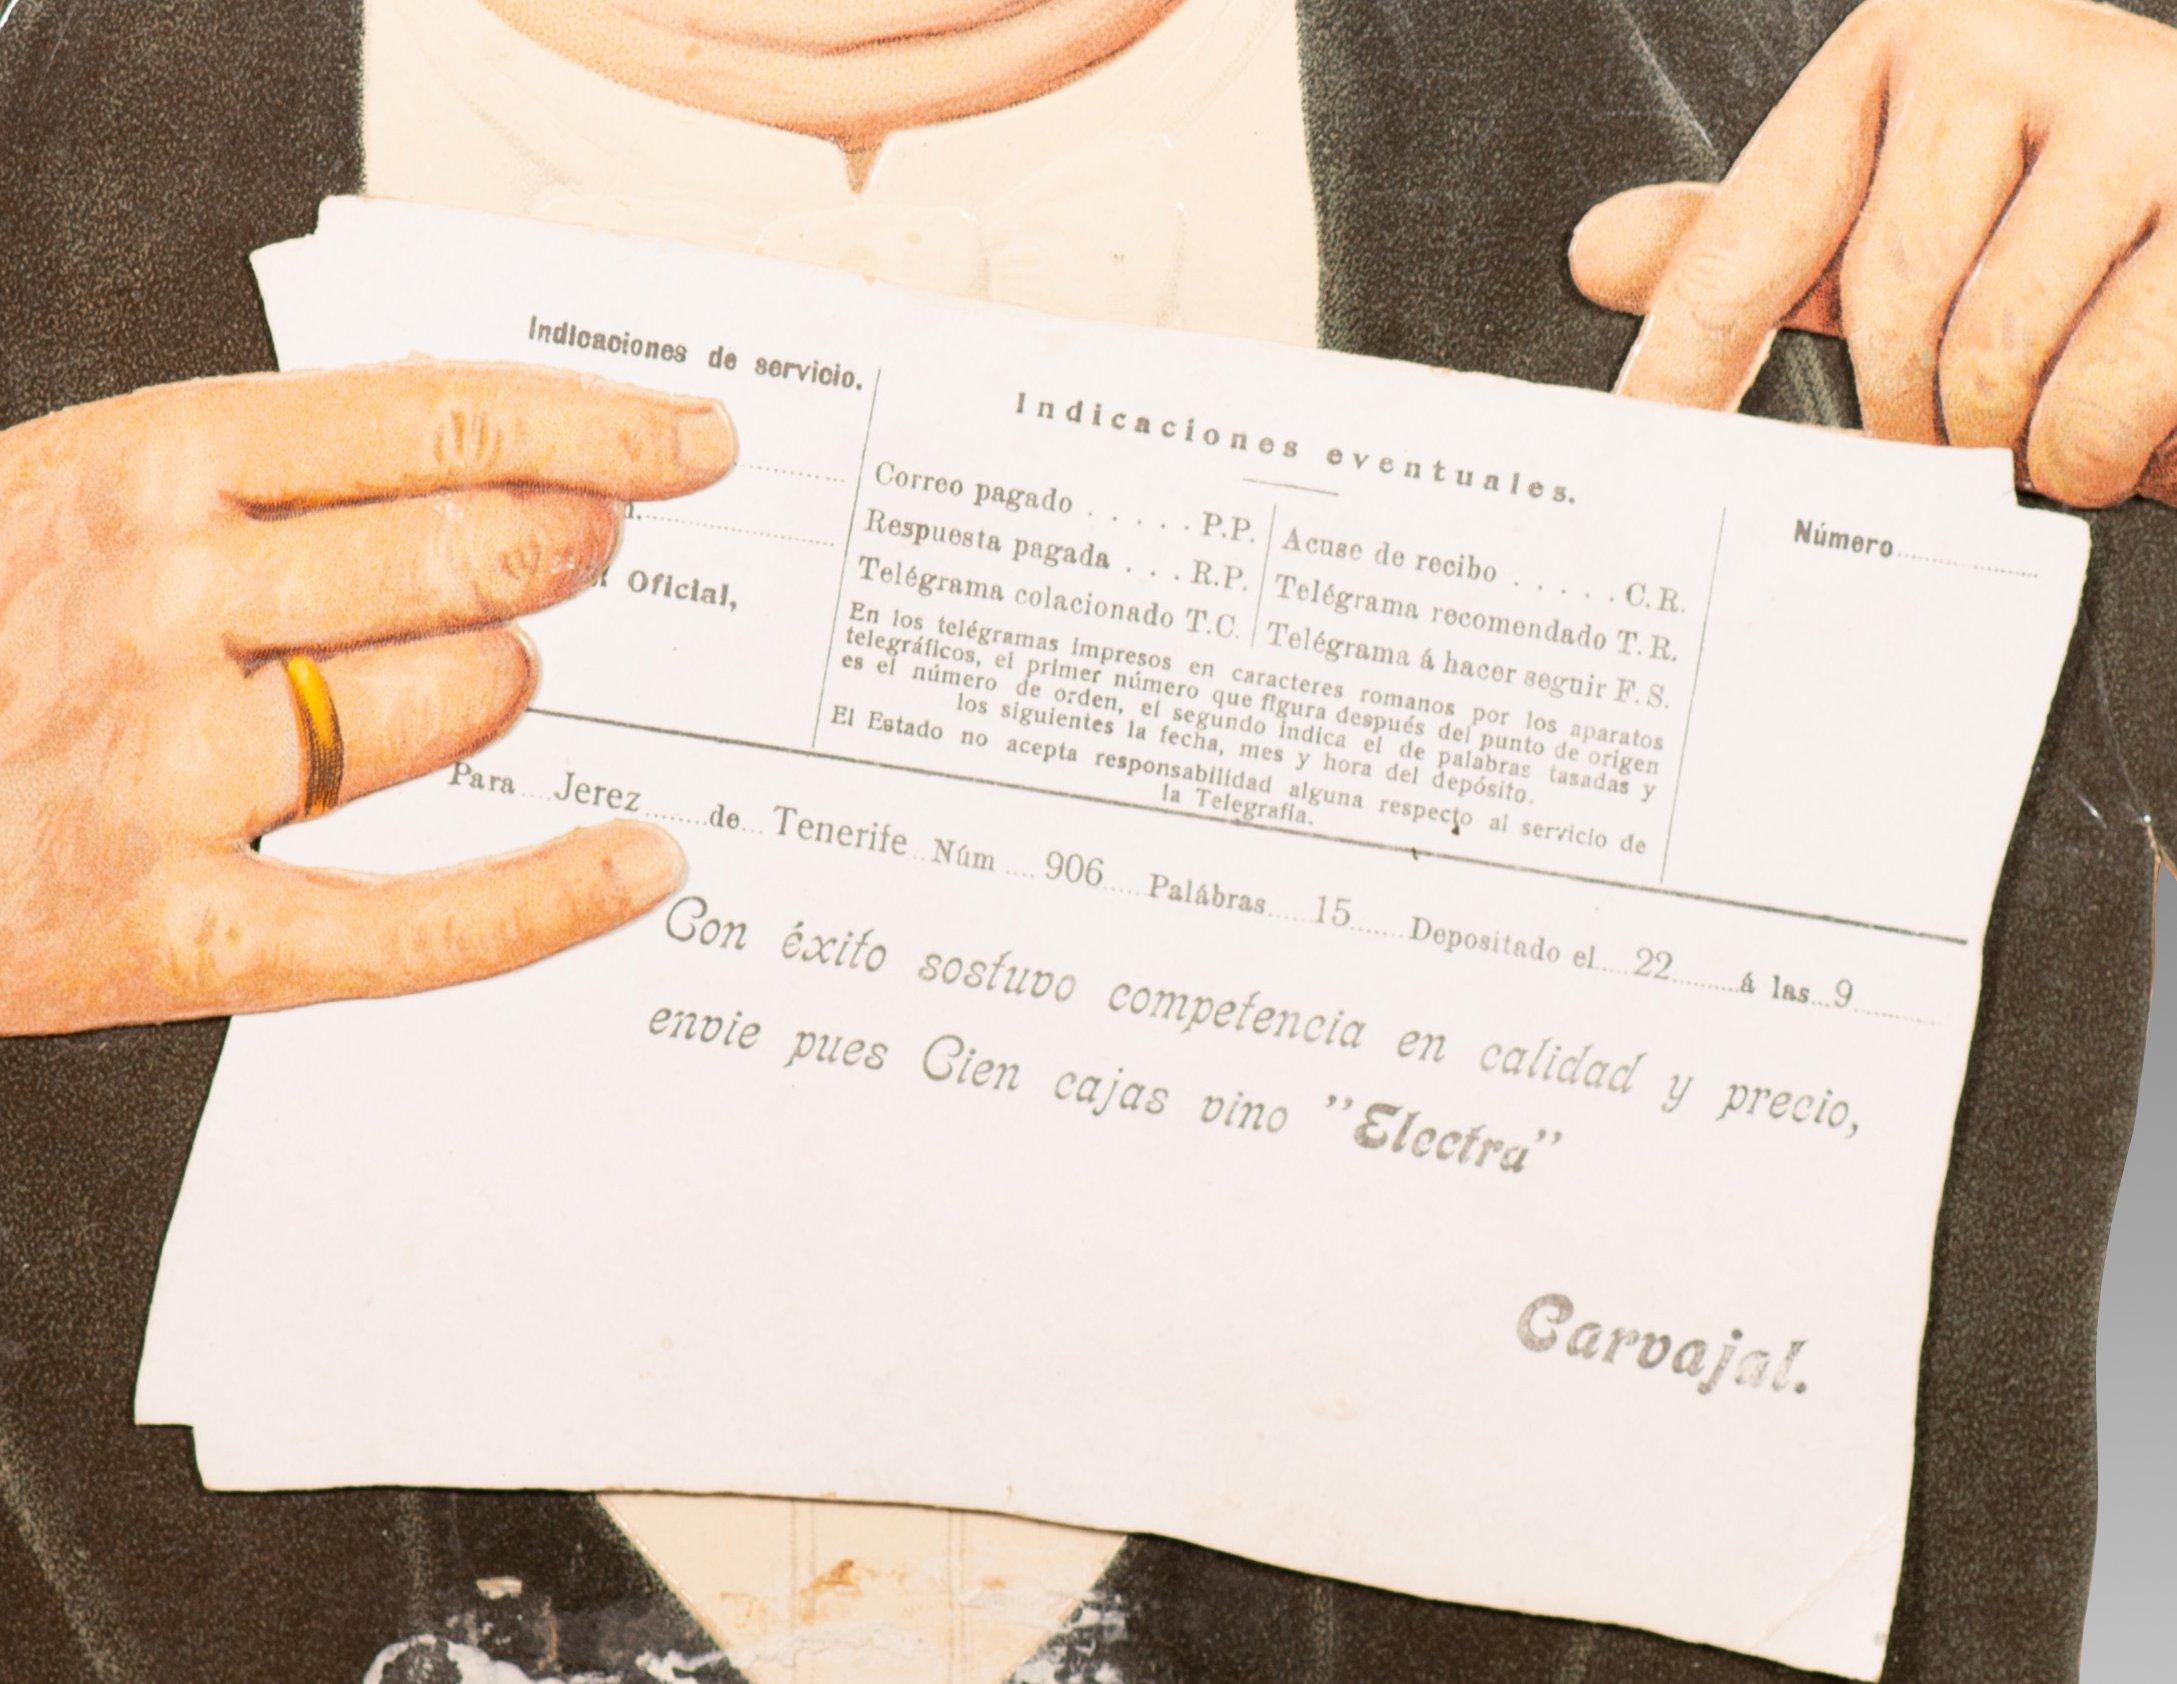 Indicaciones de servicio.
Oficial,
Indicaciones eventuales.
Correo pagado . . . . . P.P.
Respuesta pagada . . . R.P.
Telégrama colacionado T.C.
Acuse de recibo . . . . . C.R.
Telégrama recomendado T.R.
Telégrama á hacer seguir F.S.
En los telégramas impresos en caracteres romanos por los aparatos
telegráficos, el primer número que figura después del punto de origen
es el número de orden, el segundo indica el de palabras tasadas y
los siguientes la fecha, mes y hora del depósito.
El Estado no acepta responsabilidad alguna respecto al servicio de
la Telegrafía.
Número
Para Jerez de Tenerife Núm 906 Palábras 15 Depositado el 22 á las 9
Con éxito sostuvo competencia en calidad y precio,
envie pues Cien cajas vino "Electra"
Carvajal.